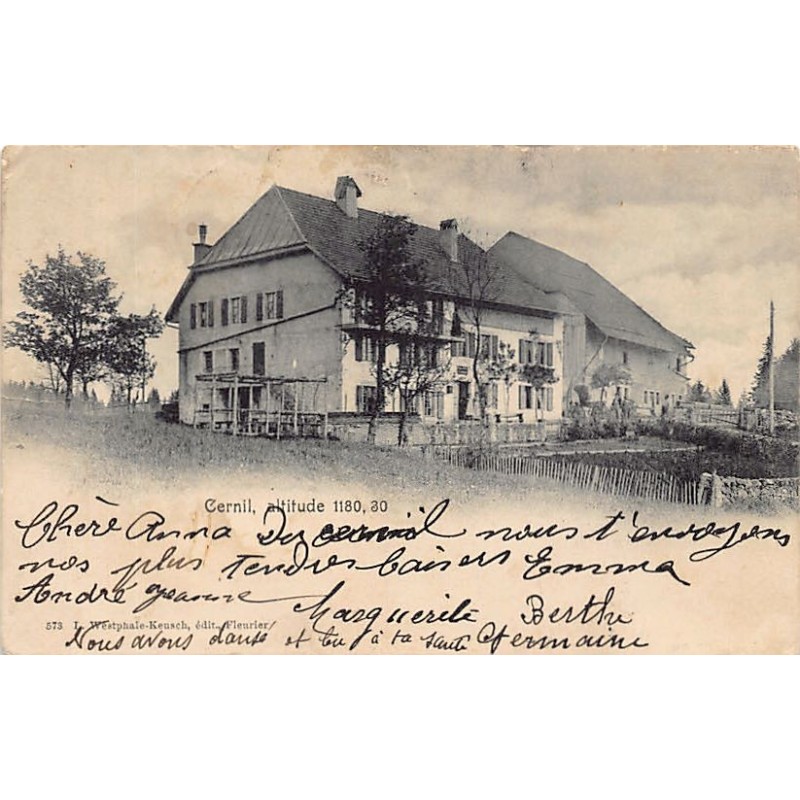 Cernil, altitude 1180,30
Chère Anna Du cernil nous t'envoyons
nos plus tendres baisers Emma
André Jeanne Marguerite Berthe
573 L. Westphale-Keusch, édit., Fleurier
Nous avons dansé et bu à ta santé Germaine